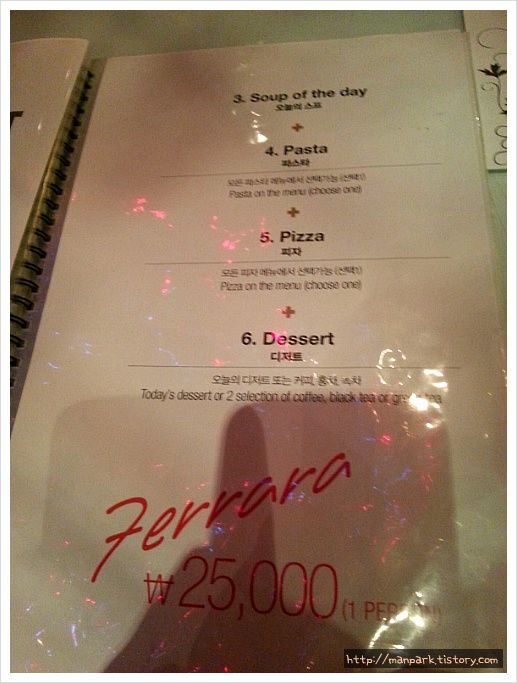 3. Soup of the day
오늘의 스프
+
4. Pasta
파스타
모든 파스타 메뉴에서 선택가능 (선택1)
Pasta on the menu (choose one)
+
5. Pizza
피자
모든 피자 메뉴에서 선택가능 (선택1)
Pizza on the menu (choose one)
+
6. Dessert
디저트
오늘의 디저트 또는 커피, 홍차, 녹차
Today's dessert or 2 selection of coffee, black tea or green tea
Ferrara
₩25,000 (1 PERSON)
http://manpark.tistory.com